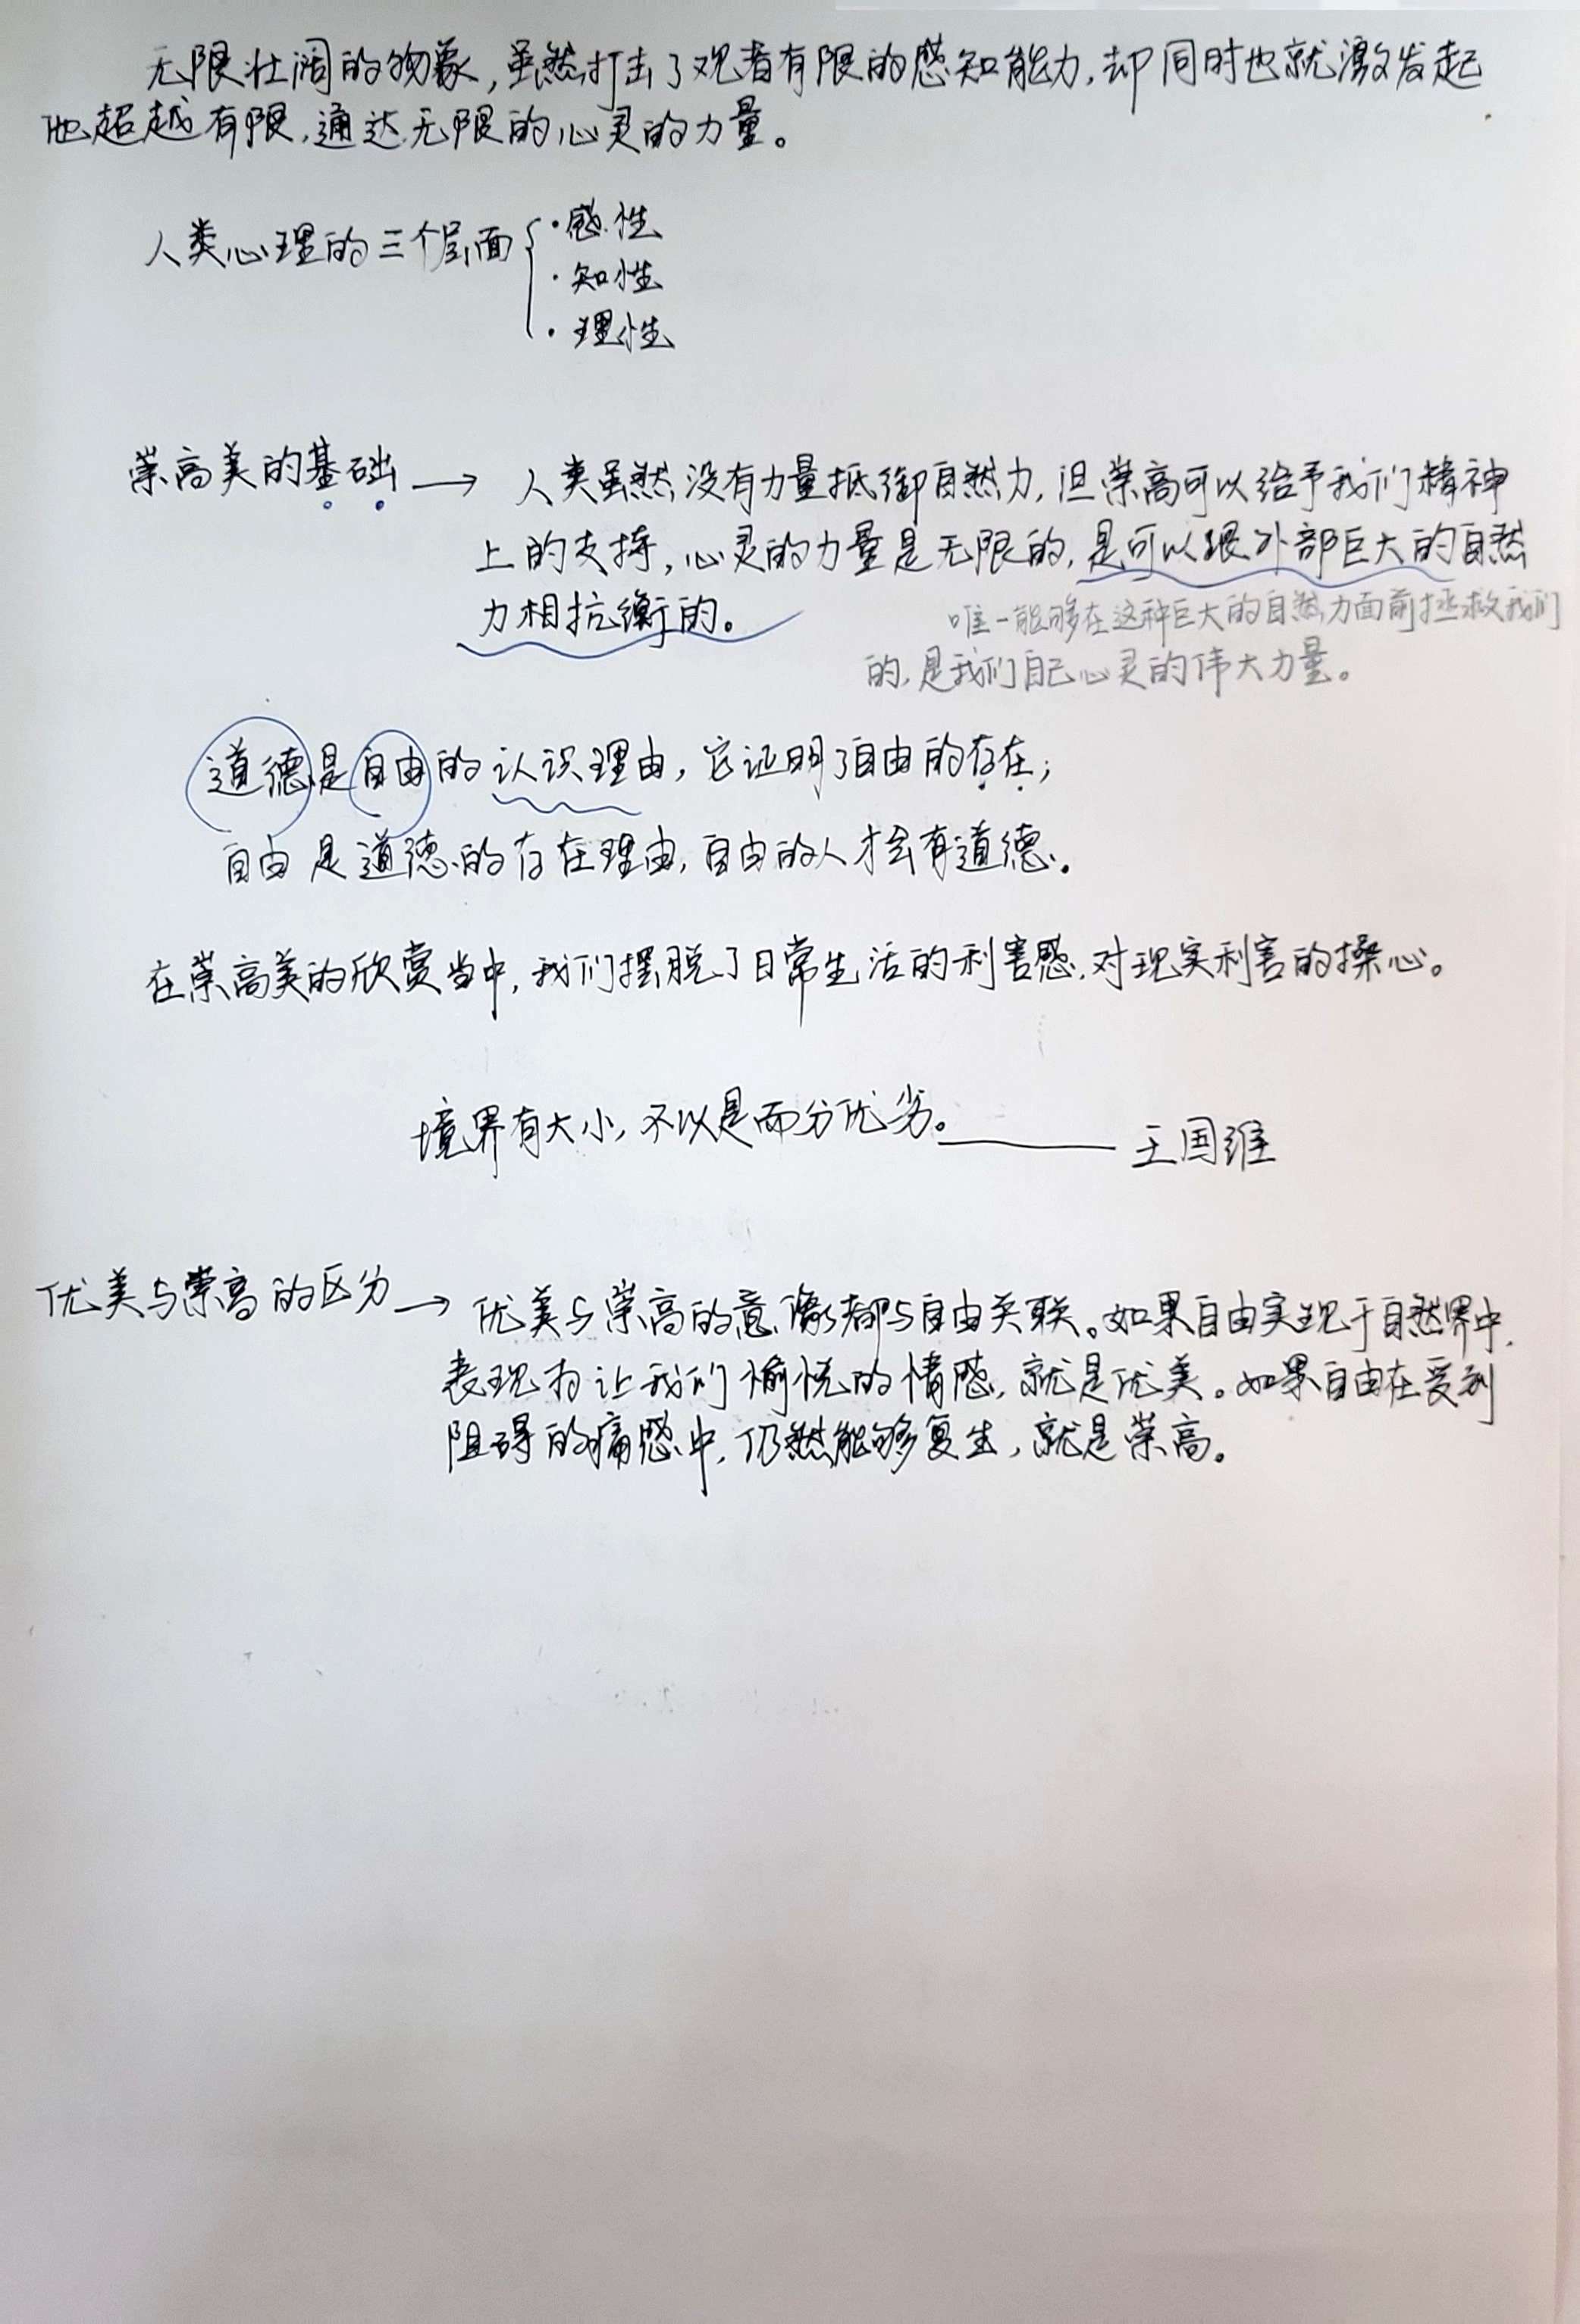 无限壮阔的物象,虽然打击了观者有限的感知能力,却同时也就激发起
他超越有限,通达无限的心灵的力量。
人类心理的三个层面{·感性
·知性
·理性
崇高美的基础→人类虽然没有力量抵御自然力,但崇高可以给予我们精神
上的支持,心灵的力量是无限的,是可以跟外部巨大的自然
力相抗衡的。
唯一能够在这种巨大的自然力面前拯救我们
的,是我们自己心灵的伟大力量。
道德是自由的认识理由,它证明了自由的存在;
自由是道德的存在理由,自由的人才会有道德。
在崇高美的欣赏当中,我们摆脱了日常生活的利害感,对现实利害的操心。
境界有大小,不以是而分优劣。——王国维
优美与崇高的区分→优美与崇高的意像都与自由关联。如果自由实现于自然界中,
表现为让我们愉悦的情感,就是优美。如果自由在受到
阻碍的痛感中,仍然能够复生,就是崇高。